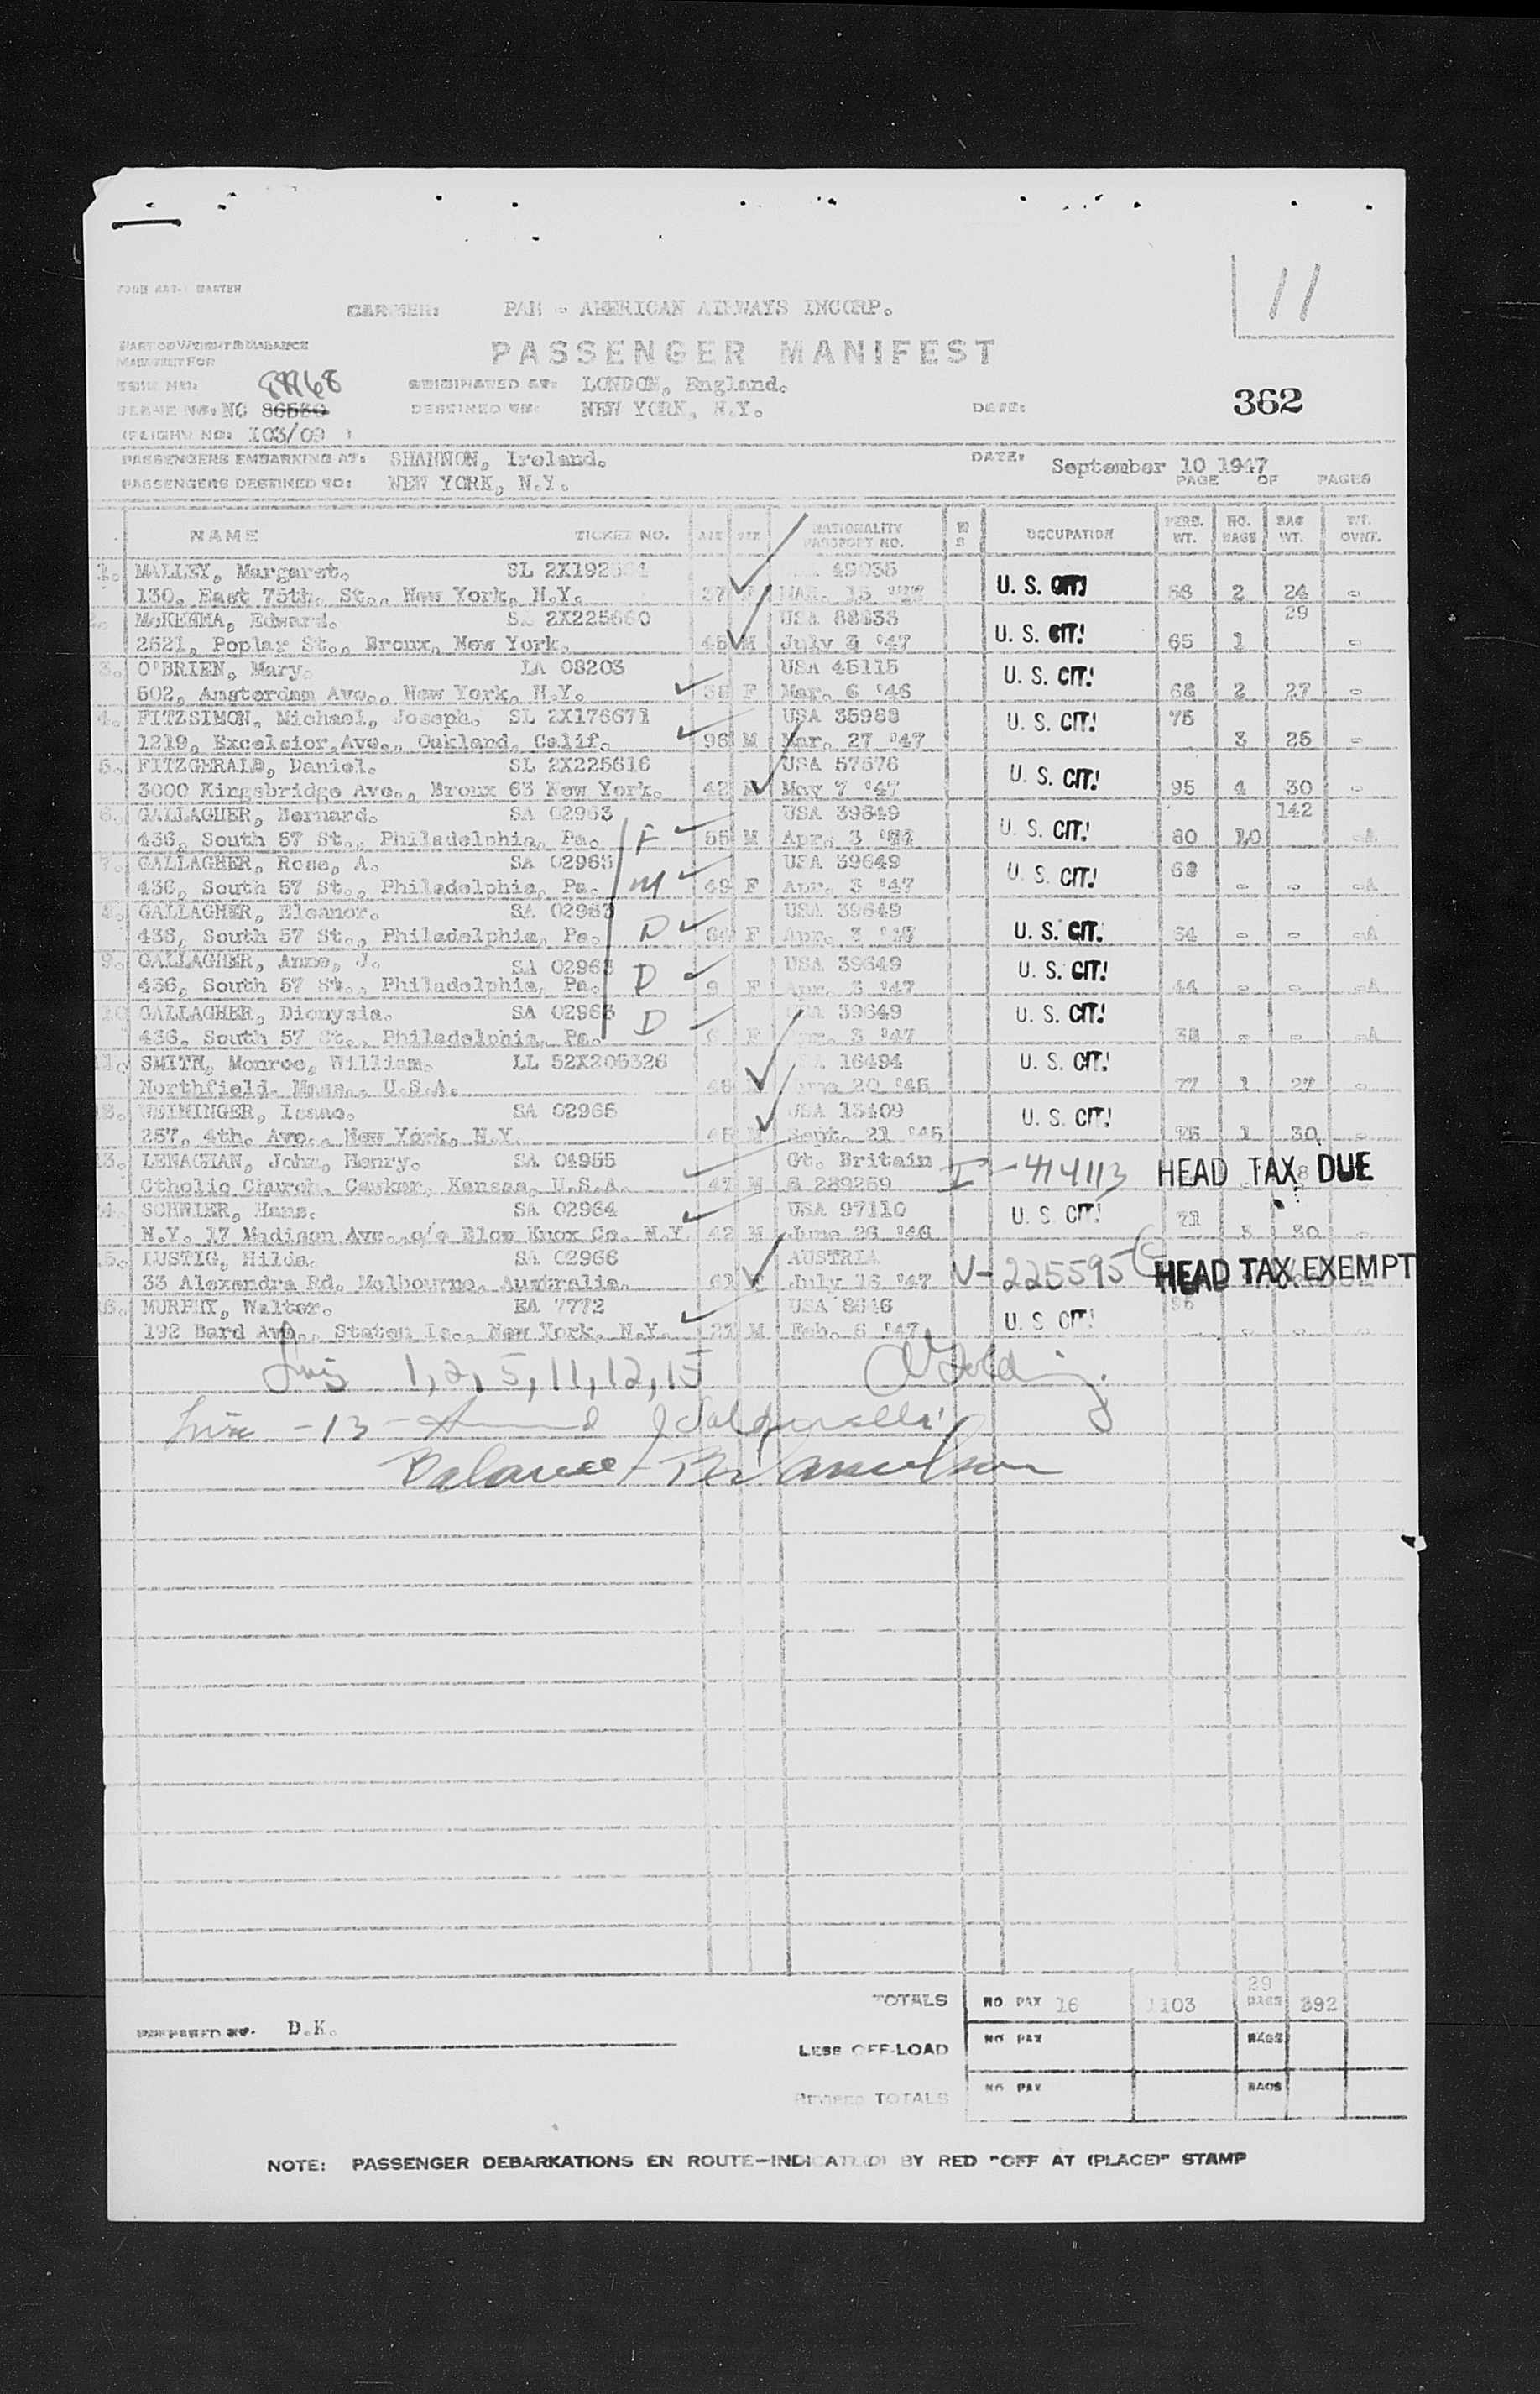 11
FORM MASTER
CARRIER: PAN - AMERICAN AIRWAYS INCORP.
PART OF WEIGHT & BALANCE
MANIFEST FOR
PASSENGER MANIFEST
88868
ORIGINATED AT: LONDON, England.
PLANE NO: NC 86530
DESTINED TO: NEW YORK, N.Y.
DATE:
362
(FLIGHT NO: 103/09 )
PASSENGERS EMBARKING AT: SHANNON, Ireland.
DATE: September 10 1947
PASSENGERS DESTINED TO: NEW YORK, N.Y.
PAGE OF PAGES
NAME TICKET NO. AGE SEX NATIONALITY PASSPORT NO. OCCUPATION PERS. WT. NO. BAGS BAG WT. WT. OVNT.
1. MALLEY, Margaret. SL 49035
130, East 75th. St., New York, N.Y. 37 U. S. CIT! 2 24 -
2. McKENNA, Edward. 2X225660 USA 29
2621, Poplar St., Bronx, New York. 45 M July '47 U. S. CIT! 65 1 -
3. O'BRIEN, Mary. LA 08203 USA 45115
502, Amsterdam Ave., New York, N.Y. 38 F Mar. 6 '46 U. S. CIT! 68 2 27 -
4. FITZSIMON, Michael, Joseph. SL 2X176671 USA 35988 75
1219, Excelsior, Ave., Oakland, Calif. 96 M Mar. 27 '47 U. S. CIT! 3 25 -
5. FITZGERALD, Daniel. SL 2X225616 USA 57576
3000 Kingsbridge Ave., Bronx 63 New York. 42 M May 7 '47 U. S. CIT! 95 4 30 -
6. GALLAGHER, Bernard. SA 02963 USA 39649 142
436, South 57 St., Philadelphia, Pa. F 55 M Apr. 3 U. S. CIT! 80 10 -A
7. GALLAGHER, Rose, A. SA 02963 USA 39649 68
436, South 57 St., Philadelphia, Pa. M 49 F Apr. 3 '47 U. S. CIT! - - -A
8. GALLAGHER, Eleanor. SA 02963 USA 39649
436, South 57 St., Philadelphia, Pa. D F Apr. 3 U. S. CIT. 54 - - -A
9. GALLAGHER, Anne, J. SA 02963 USA 39649
436, South 57 St., Philadelphia, Pa. D 9 F Apr. 3 '47 U. S. CIT! 44 - - -A
10 GALLAGHER, Dionysia. SA 02963 USA 39649
436, South 57 St., Philadelphia, Pa. D F Apr. 3 '47 U. S. CIT! - - -A
11. SMITH, Monroe, William. LL 52X205326 16494
Northfield, Mass., U.S.A. 48 20 U. S. CIT! 77 1 27 -
12. WEININGER, Isaac. SA 02965 USA 13409
257, 4th. Ave., New York, N.Y. M Sept. 21 U. S. CIT! 1 30 -
13. LENAGHAN, John, Henry. SA 04955 Gt. Britain
Ctholic Church, Cawker, Kansas, U.S.A. 47 M I-414113 HEAD TAX DUE
14. SCHWIER, Hans. SA 02964 USA 97110 71
N.Y. 17 Madison Ave., c/o Blow Knox Co. N.Y. 42 M June 26 '46 U. S. CIT! 3 30 -
15. LUSTIG, Hilda. SA 02966 AUSTRIA
33 Alexandra Rd. Melbourne, Australia. July 16 '47 V-225595 HEAD TAX EXEMPT
16. MURPHY, Walter. EA 7772 USA 8646 96
192 Bard Ave., Staten Is., New York, N.Y. M Feb. 6 '47 U. S. CIT! - - -
1, 2, 5, 11, 12, 15
Line - 13 -
Balance
TOTALS NO. PAX 16 1103 29 BAGS 392
PREPARED BY. D.K.
LESS OFF-LOAD NO. PAX BAGS
REVISED TOTALS NO. PAX BAGS
NOTE: PASSENGER DEBARKATIONS EN ROUTE—INDICATED BY RED "OFF AT (PLACE)" STAMP